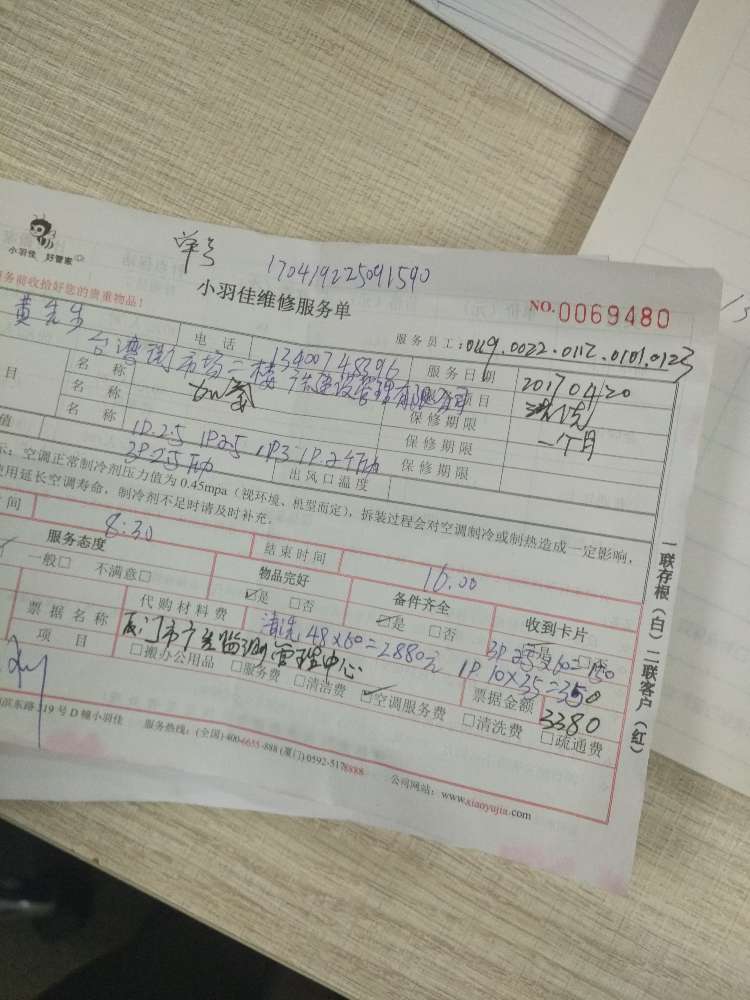 单号 170419225091590
小羽佳 好管家
小羽佳维修服务单
NO.0069480
务前收拾好您的贵重物品!
服务员工:0119.0022.0112.0101.0123
黄先生 电话 13400748396 服务日期 20170420
台湾街市场二楼 建设管理有限公司 项目 清洗
名称 加氨 保修期限 一个月
名称 保修期限
名称 保修期限
值 1P.2.5 1P2.5
3P2.5 出风口温度
示:空调正常制冷剂压力值为0.45mpa(视环境、机型而定),拆装过程会对空调制冷或制热造成一定影响,
使用延长空调寿命,制冷剂不足时请及时补充。
时间 8:30 结束时间 16.00
服务态度 物品完好 备件齐全 收到卡片
一般□ 不满意□ ☑是 □否 ☑是 □否 是 否
代购材料费 清洗48×60=2880元 1P10×35=350
票据名称 厦门市 监测管理中心 票据金额 3380
项目 □搬办公用品 □服务费 □清洁费 ☑空调服务费 □清洗费 □疏通费
滨东路319号D幢小羽佳 服务热线:(全国)400-6655-888 (厦门)0592-5178888 公司网站:www.xiaoyujia.com
一联存根(白)二联客户(红)